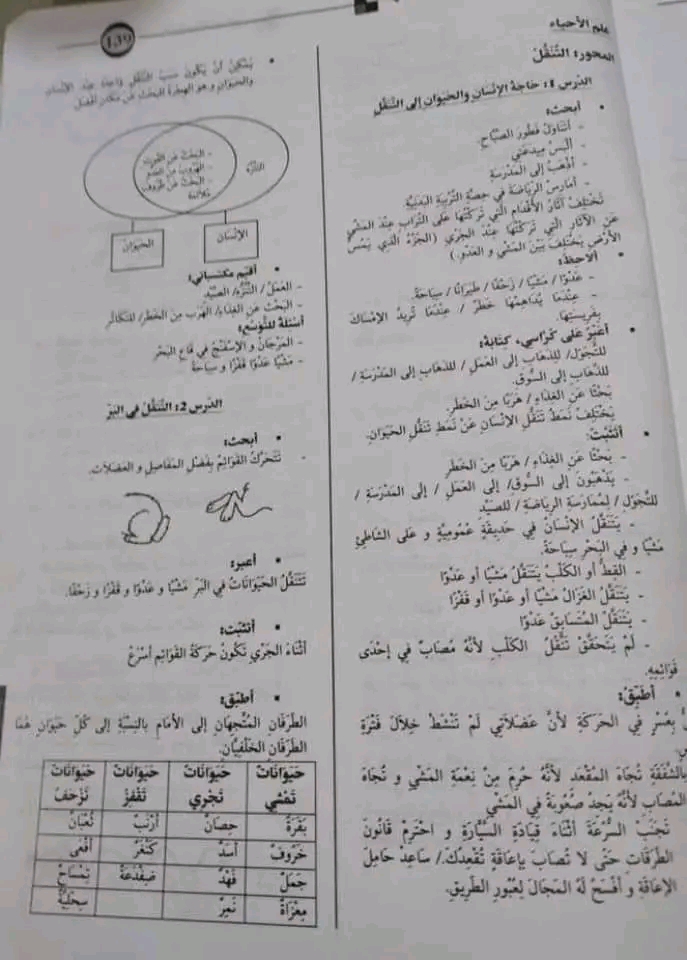 139
علم الأحياء
المحور: التَّنَقُّلُ
الدرس 1: حَاجَةُ الإِنْسَانِ والحَيَوَانِ إلى التَّنَقُّلِ
• أبحث:
- أتناولُ فَطُورَ الصَّبَاحِ.
- ألبسُ مِيدَعَتي
- أَذْهَبُ إلى المَدْرَسَةِ
- أمَارِسُ الرِّيَاضَةَ في حِصَّةِ التَّرْبِيَةِ البَدَنِيَّةِ
تَخْتَلِفُ آثَارُ الأَقْدَامِ الَّتي تَرَكَتْهَا عَلى التُّرَابِ عِنْدَ المَشْيِ
عَنِ الآثَارِ الَّتي تَرَكَتْهَا عِنْدَ الجَرْيِ (الجُزْءُ الَّذي يَمَسُّ
الأَرْضَ يَخْتَلِفُ بَيْنَ المَشْيِ و العَدْوِ.)
• ألاحظ:
- عَدْوًا / مَشْيًا / زَحْفًا / طَيَرَانًا / سِبَاحَةً.
- عِنْدَمَا يُدَاهِمُهَا خَطَرٌ / عِنْدَمَا تُرِيدُ الإمْسَاكَ
بِفَرِيسَتِهَا.
• أعَبِّرُ عَلى كُرَّاسي، كِتَابَةً:
للتَّجَوُّلِ/ للذَّهَابِ إلى العَمَلِ / للذَّهَابِ إلى المَدْرَسَةِ /
للذَّهَابِ إلى السُّوقِ.
بَحْثًا عَنِ الغِذَاءِ / هَرَبًا مِنَ الخَطَرِ.
يَخْتَلِفُ نَمَطُ تَنَقُّلِ الإنْسَانِ عَنْ نَمَطِ تَنَقُّلِ الحَيَوَانِ.
• أتثبّت:
- بَحْثًا عَنِ الغِذَاءِ / هَرَبًا مِنَ الخَطَرِ
- يَذْهَبُونَ إلى السُّوقِ/ إلى العَمَلِ / إلى المَدْرَسَةِ /
للتَّجَوُّلِ / لِمُمَارَسَةِ الرِّيَاضَةِ / للصَّيْدِ.
- يَتَنَقَّلُ الإنْسَانُ في حَدِيقَةٍ عُمُومِيَّةٍ و عَلى الشَّاطِئِ
مَشْيًا و في البَحْرِ سِبَاحَةً.
- القِطُّ أو الكَلْبُ يَتَنَقَّلُ مَشْيًا أو عَدْوًا
- يَتَنَقَّلُ الغَزَالُ مَشْيًا أو عَدْوًا أو قَفْزًا
- يَتَنَقَّلُ المُتَسَابِقُ عَدْوًا
- لَمْ يَتَحَقَّقْ تَنَقُّلُ الكَلْبِ لأنَّهُ مُصَابٌ في إحْدَى
قَوَائِمِهِ.
• أطَبِّقُ:
بِعُسْرٍ في الحَرَكَةِ لأنَّ عَضَلاَتي لَمْ تَنْشَطْ خِلاَلَ فَتْرَةِ
بالشَّفَقَةِ تُجَاهَ المُقْعَدِ لأنَّهُ حُرِمَ مِنْ نِعْمَةِ المَشْيِ و تُجَاهَ
المُصَابِ لأنَّهُ يَجِدُ صُعُوبَةً في المَشْيِ
تَجَنَّبِ السُّرْعَةَ أثْنَاءَ قِيَادَةِ السَّيَّارَةِ و احْتَرِمْ قَانُونَ
الطُّرُقَاتِ حَتَّى لا تُصَابَ بإعَاقَةٍ تُقْعِدُكَ./ سَاعِدْ حَامِلَ
الإعَاقَةِ و أفْسِحْ لَهُ المَجَالَ لِعُبُورِ الطَّرِيقِ.
• يُمْكِنُ أنْ يَكُونَ سَبَبُ التَّنَقُّلِ وَاحِدًا عِنْدَ الإنْسَانِ
والحَيَوَانِ و هو الهِجْرَةُ للبَحْثِ عَنْ مَكَانٍ أفْضَلَ
- البَحْثُ عَنِ القُوتِ
- الهُرُوبُ مِنَ
- البَحْثُ عَنْ ظُرُوفٍ
مُلاَئِمَةٍ
النُّزْهَةُ
الإنْسَان
الحَيَوَان
• أقيّم مكتسباتي:
- العَمَلُ / التَّنَزُّهُ/ الصَّيْدُ
- البَحْثُ عَنِ الغِذَاءِ/ الهَرَبُ مِنَ الخَطَرِ/ للتَّكَاثُرِ
أسئلة للتوسّع:
- المَرْجَانُ و الإسْفَنْجُ في قَاعِ البَحْرِ
- مَشْيًا عَدْوًا قَفْزًا و سِبَاحَةً
الدرس 2: التَّنَقُّلُ في البَرِّ
• أبحث:
- تَتَحَرَّكُ القَوَائِمُ بِفَضْلِ المَفَاصِلِ و العَضَلاَتِ.
• أعبر:
تَتَنَقَّلُ الحَيَوَانَاتُ في البَرِّ مَشْيًا و عَدْوًا و قَفْزًا و زَحْفًا.
• أتثبّت:
أثْنَاءَ الجَرْيِ تَكُونُ حَرَكَةُ القَوَائِمِ أسْرَعُ
• أطبّق:
الطَّرَفَانِ المُتَّجِهَانِ إلى الأمَامِ بالنِّسْبَةِ إلى كُلِّ حَيَوَانٍ هُمَا
الطَّرَفَانِ الخَلْفِيَّانِ.
حَيَوَانَاتٌ تَمْشِي حَيَوَانَاتٌ تَجْرِي حَيَوَانَاتٌ تَقْفِزُ حَيَوَانَاتٌ تَزْحَفُ
بَقَرَةٌ حِصَانٌ أرْنَبٌ ثُعْبَانٌ
خَرُوفٌ أسَدٌ كَنْغَرٌ أفْعَى
جَمَلٌ فَهْدٌ ضِفْدَعَةٌ تِمْسَاحٌ
مِعْزَاةٌ نَمِرٌ سِحْلِيَّةٌ